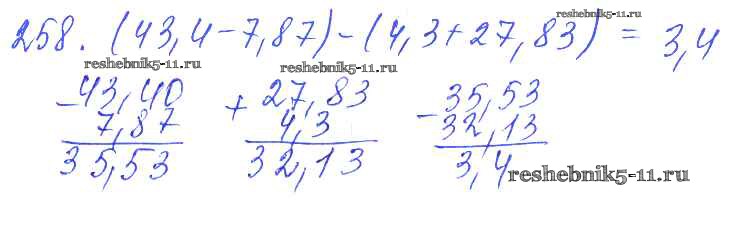 reshebnik5-11.ru
258. (43,4-7,87)-(4,3+27,83) = 3,4
reshebnik5-11.ru reshebnik5-11.ru
-43,40 + 27,83 -35,53
7,87 4,3 32,13
35,53 32,13 3,4
reshebnik5-11.ru